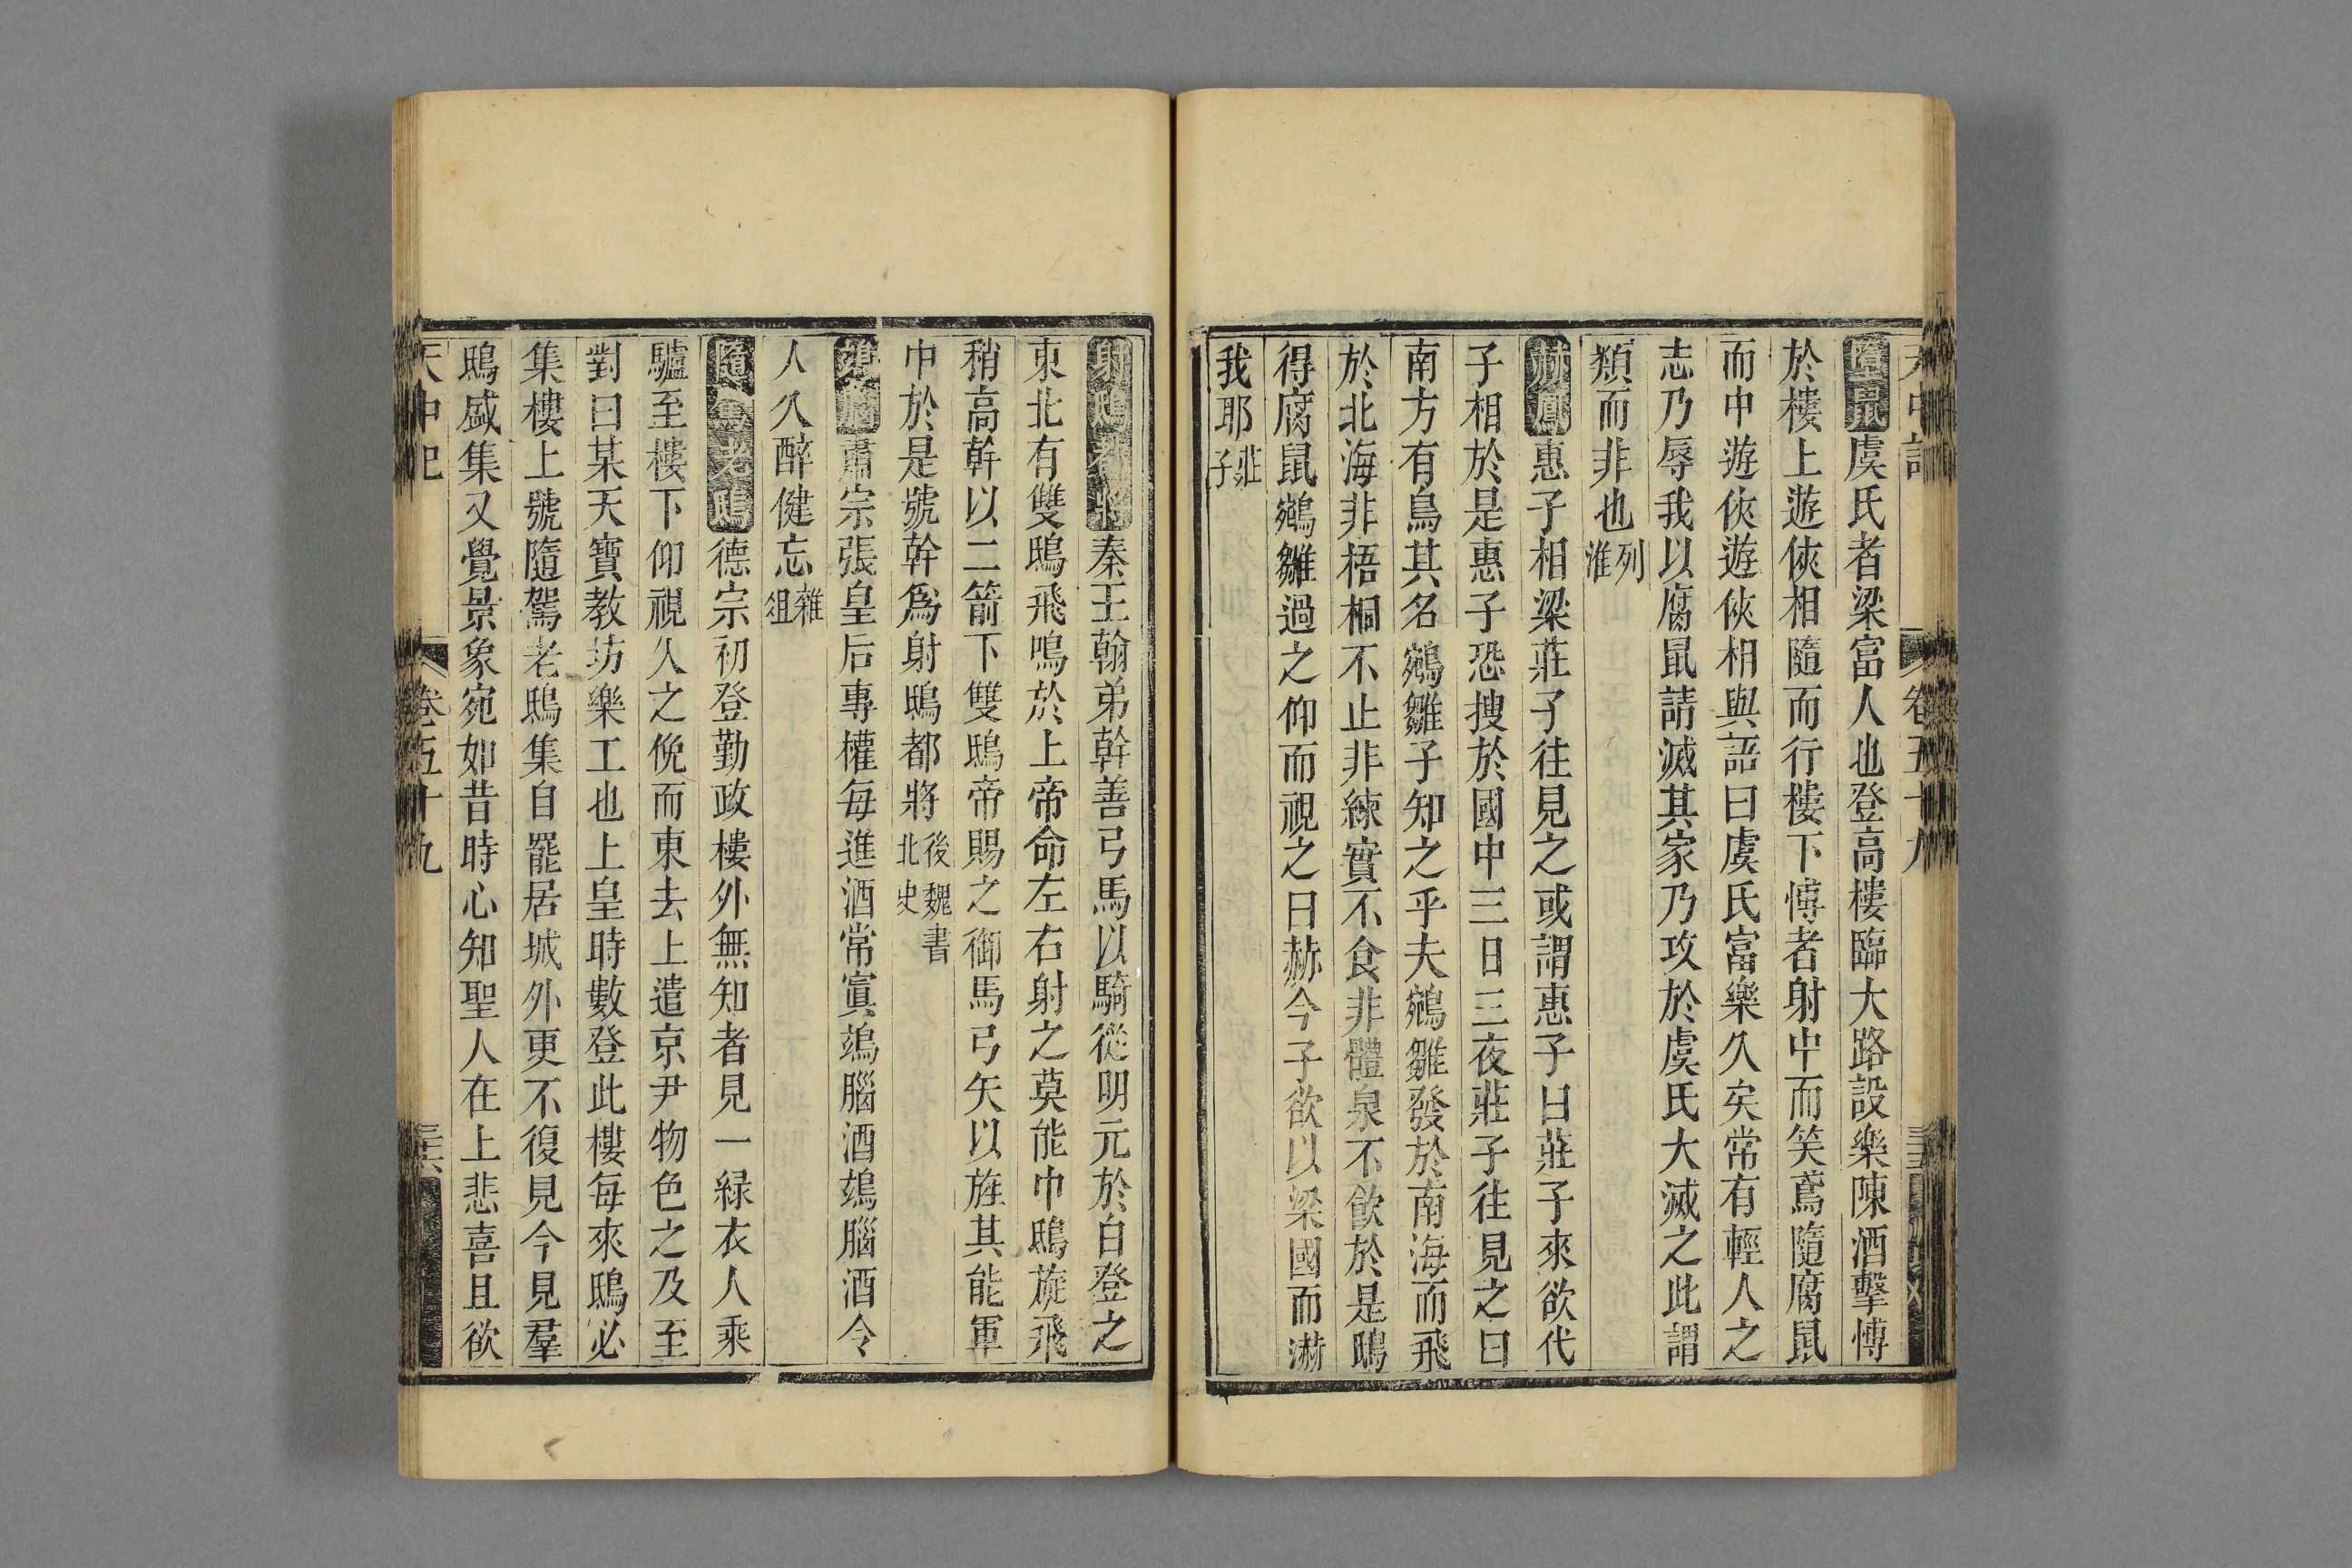 天中記 卷五十九
墮鼠虞氏者梁富人也登高樓臨大路設樂陳酒擊愽
於樓上遊俠相隨而行樓下愽者射中而笑鳶隨腐鼠
而中遊俠遊俠相與語曰虞氏富樂久矣常有輕人之
志乃辱我以腐鼠請滅其家乃攻於虞氏大滅之此謂
類而非也列淮
赫鳳惠子相梁莊子往見之或謂惠子曰莊子來欲代
子相於是惠子恐搜於國中三日三夜莊子往見之曰
南方有鳥其名鵷雛子知之乎夫鵷雛發於南海而飛
於北海非梧桐不止非練實不食非醴泉不飲於是鴟
得腐鼠鵷雛過之仰而視之曰赫今子欲以梁國而嚇
我耶莊子
射鴟都將秦王翰弟幹善弓馬以騎從明元於白登之
東北有雙鴟飛鳴於上帝命左右射之莫能中鴟旋飛
稍高幹以二箭下雙鴟帝賜之御馬弓矢以旌其能軍
中於是號幹爲射鴟都將後魏書北史
鴆腦肅宗張皇后專權每進酒常寘鴆腦酒鴆腦酒令
人久醉健忘雜俎
隨駕老鴟德宗初登勤政樓外無知者見一緑衣人乘
驢至樓下仰視久之俛而東去上遣京尹物色之及至
對曰某天寳教坊樂工也上皇時數登此樓每來鴟必
集樓上號隨駕老鴟集自罷居城外更不復見今見羣
鴟盛集又覺景象宛如昔時心知聖人在上悲喜且欲
天中記 卷五十九